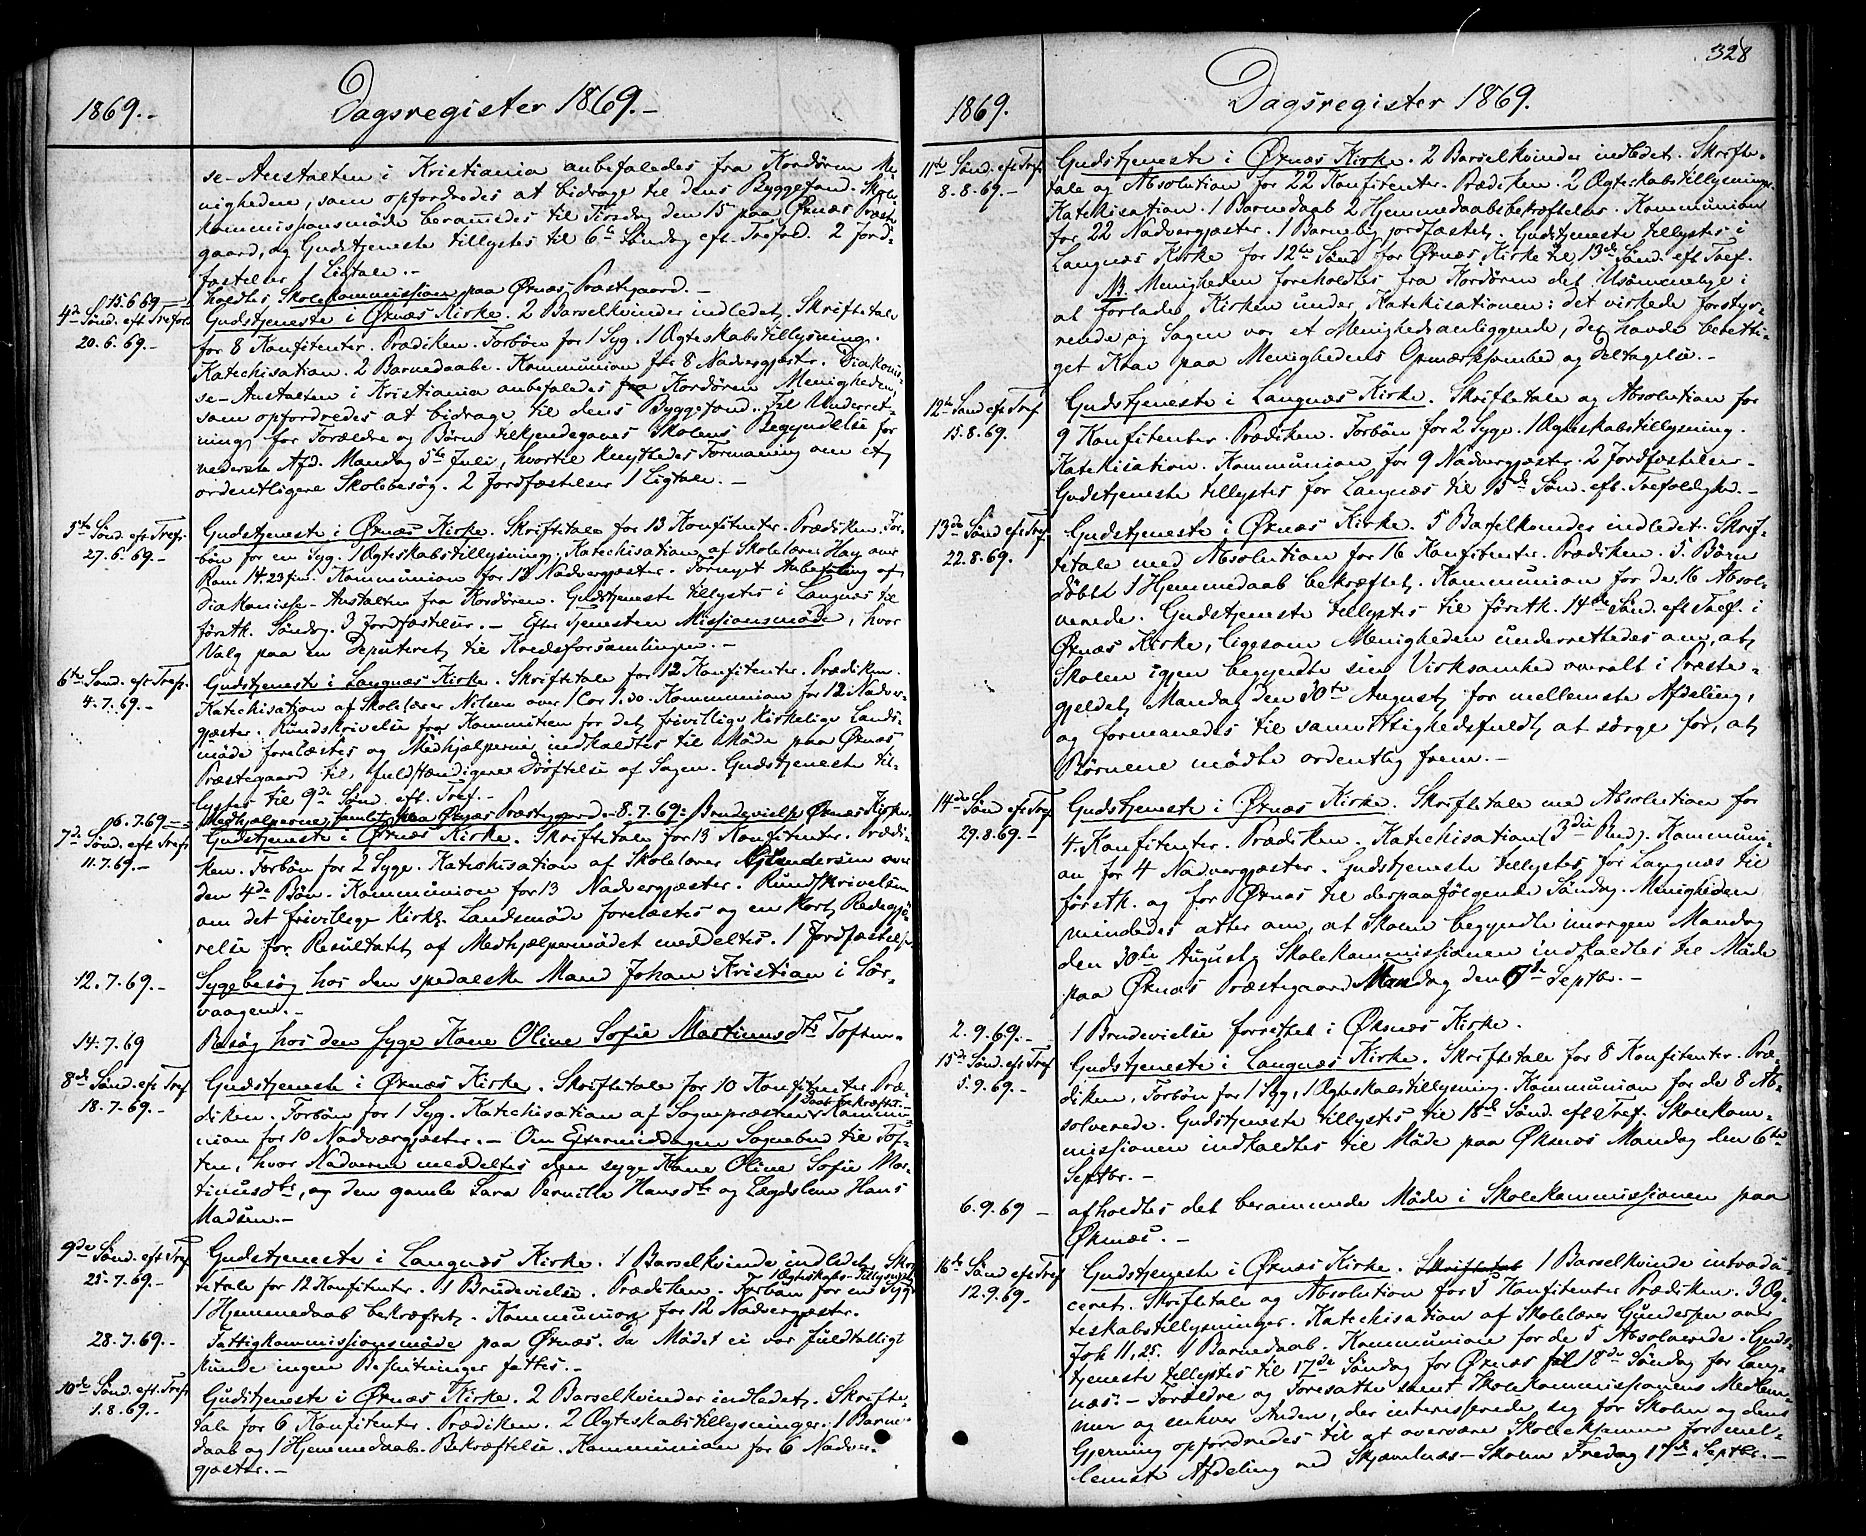 1869.-
Dagsregister 1869.-
se-Anstalten i Kristiania anbefaledes fra Kordøren Me-
nigheden, som opfordredes at bidrage til dens Byggefond. Skole-
kommissionsmøde berammedes til Tirsdag den 15 paa Øxnæs Præste
gaard, og Gudstjeneste tillystes til 6te Søndag eft. Trefold. 2 Jord-
fæstelser 1 Ligtale.-
15.6.69 holdtes Skolekommission paa Øxnæs Præstegaard.-
4de Sönd. eft Trefold
20.6.69.-
Gudstjeneste i Øxnæs Kirke. 2 Barselkvinder indledet. Skriftetale
for 8 Konfitenter. Prædiken. Forbön for 1 Syg. 1 Ægteskabstillysning.
Katechisation. 2 Barnedaabe. Kommunion for 8 Nadvergjæster. Diakonis-
se-Anstalten i Kristiania anbefaledes fra Kordøren Menigheden,
som opfordredes at bidrage til dens Byggefond. Til Underret-
ning for Forældre og Børn tilkjendegaves Skolens Begyndelse for
nederste Afd. Mandag 5te Juli, hvortil knyttedes Formaning om et
ordentligere Skolebesøg. 2 Jordfæstelser 1 Ligtale.-
5te Sönd. eft Tref.
27.6.69.-
Gudstjeneste i Øxnæs Kirke. Skriftetale for 13 Konfitenter. Prædiken. For-
bön for en Syg. 1 Ægteskabstillysning. Katechisation af Skolelærer Hay over
Rom 14.23 fin. Kommunion for 13 Nadvergjæster. Fornyet Anbefaling af
Diakonisse-Anstalten fra Kordøren. Gudstjeneste tillystes i Langnæs til
førstk. Søndag. 3 Jordfæstelser.- Efter Tjenesten Missionsmøde, hvor
Valg paa en Deputeret til Kredsforsamlingen.-
6te Sönd. eft Tref.
4.7.69.-
Gudstjeneste i Langnæs Kirke. Skriftetale for 12 Konfitenter. Prædiken.
Katechisation af Skolelærer Nilsen over 1 Cor 1.30. Kommunion for 12 Nadver-
gjæster. Rundskrivelse fra Kommitteen for det frivillige kirkelige Lands-
møde forelæstes og Medhjælperne indkaldtes til Møde paa Øxnæs
Præstegaard til fuldstændigere Drøftelse af Sagen. Gudstjeneste til-
lystes til 9de Sönd. eft. Tref.-
6.7.69 Medhjælperne samlet paa Øxnæs Præstegaard.-8.7.69: Brudevielse Øxnæs Kirke.
7de Sönd. eft Tref.
11.7.69.-
Gudstjeneste i Øxnæs Kirke. Skriftetale for 13 Konfitenter. Prædi-
ken. Forbön for 2 Syge. Katechisation af Skolelærer Gundersen over
den 4de Bön. Kommunion for 13 Nadvergjæster. Rundskrivelsen
om det frivillige kirkl. Landsmøde forelæstes og en kort Redegjø-
relse for Resultatet af Medhjælpermødet meddeltes. 1 Jordfæstelse
12.7.69.-
Sygebesøg hos den spedalske Mand Johan Kristian i Sör-
vaagen.-
14.7.69
Besøg hos den syge Kone Oline Sofie Martinusdtr Toften.-
8de Sönd. eft Tref
18.7.69.-
Gudstjeneste i Øxnæs Kirke. Skriftetale for 10 Konfitenter. Præ-
diken. Forbön for 1 Syg. Katechisation af Sognepræsten. 1 Daab bekræftet. Kommu-
nion for 10 Nadvergjæster.- Om Eftermiddagen Sognebud til Tof-
ten, hvor Nadveren meddeltes den syge Kone Oline Sofie Mar-
tinusdtr, og den gamle Sara Pernille Hansdtr og Lægdslem Hans
Madsen.-
9de Sönd. eft Tref
25.7.69.-
Gudstjeneste i Langnæs Kirke. 1 Barselkvinde indledet. Skrif-
tetale for 12 Konfitenter. 1 Brudevielse. Prædiken. 1 Ægteskabs-Tillysning Forbön for en Syg.
1 Hjemmedaab bekræftet. Kommunion for 12 Nadvergjæster.
28.7.69.-
Fattigkommissionsmøde paa Øxnæs. Da Mødet ei var fuldtalligt
kunde ingen Beslutninger fattes.-
10de Sönd. eft. Tref
1.8.69.-
Gudstjeneste i Øxnæs Kirke. 2 Barselkvinder indledet. Skrifte-
tale for 6 Konfitenter. Prædiken. 2 Ægteskabstillysninger. 1 Barne-
daab og 1 Hjemmedaabs-Bekræftelse. Kommunion for 6 Nadver-
gjæster.-
328
1869.
Dagsregister 1869.
11te Sönd. eft Tref
8.8.69.-
Gudstjeneste i Øxnæs Kirke. 2 Barselkvinder indledet. Skrifte-
tale og Absolution for 22 Konfitenter. Prædiken. 2 Ægteskabstillysninger.
Katekisation. 1 Barnedaab 2 Hjemmedaabsbekræftelser. Kommunion
for 22 Nadvergjæster. 1 Barnelig jordfæstet. Gudstjeneste tillystes i
Langnæs Kirke for 12te Sönd. for Øxnæs Kirke til 13de Sönd. eft Tref.
NB. Menigheden foreholdtes fra Kordøren det Usømmelige i
at forlade Kirken under Katekisationen: det virkede forstyr-
rende, og Sagen var et Menighedsanliggende, der havde beretti-
get Krav paa Menighedens Opmærksomhed og Deltagelse.-
12te Sönd eft Tref
15.8.69.
Gudstjeneste i Langnæs Kirke. Skriftetale og Absolution for
9 Konfitenter. Prædiken. Forbön for 2 Syge. 1 Ægteskabstillysning.
Katekisation. Kommunion for 9 Nadvergjæster. 2 Jordfæstelser.-
Gudstjeneste tillystes for Langnæs til 15de Sön. eft. Trefoldighd.-
13de Sönd eft Tref.
22.8.69.
Gudstjeneste i Øxnæs Kirke. 5 Barselkvinder indledet. Skrif-
tetale med Absolution for 16 Konfitenter. Prædiken. 5 Børn
døbt 1 Hjemmedaab bekræftet. Kommunion for de 16 Absol-
verede. Gudstjeneste tillystes til førstk. 14de Sönd. eft Tref. i
Øxnæs Kirke, ligesom Menigheden underrettedes om, at
Skolen igjen begyndte sin Virksomhed overalt i Præste-
gjeldet Mandag den 30te August for mellemste Afdeling,
og formanedes til samvittighedsfuldt at sørge for, at
Børnene mødte ordentlig frem.-
14de Sönd eft Tref
29.8.69.-
Gudstjeneste i Øxnæs Kirke. Skriftetale med Absolution for
4 Konfitenter. Prædiken. Katechisation (3die Bud). Kommuni-
on for 4 Nadvergjæster. Gudstjeneste tillystes for Langnæs til
førstk. og for Øxnæs til derpaafølgende Søndag. Menigheden
mindedes atter om, at Skolen begyndte imorgen Mandag
den 30te August. Skolekommissionen indkaldtes til Møde
paa Øxnæs Præstegaard Mandag den 6te Septbr.-
2.9.69.-
1 Brudevielse forrettet i Øxnæs Kirke.
15de Sönd. eft Tref
5.9.69.-
Gudstjeneste i Langnæs Kirke. Skriftetale for 8 Konfitenter. Præ-
diken. Forbön for 1 Syg, 1 Ægteskabstillysning. Kommunion for de 8 Ab-
solverede. Gudstjeneste tillystes til 18de Sönd. eft Tref. Skolekom-
missionen indkaldtes til Møde paa Øxnæs Mandag den 6te
Septbr.-
6.9.69 -
afholdtes det berammede Møde i Skolekommissionen paa
Øxnæs.-
16de Sönd eft Tref
12.9.69.-
Gudstjeneste i Øxnæs Kirke. Skriftetal 1 Barselkvinde introdu-
ceret. Skriftetale og Absolution for 5 Konfitenter. Prædiken. 3 Æg-
teskabstillysninger. Katechisation af Skolelærer Gundersen over
Joh 11,25. 1 Barnedaab. Kommunion for de 5 Absolverede. Guds-
tjeneste tillystes til 17de Søndag for Øxnæs til 18de Søndag for Lang-
næs.- Forældre og Foresatte samt Skolekommissionens Medlem-
mer og enhver Anden, der interesserede sig for Skolen og dens
Gjerning opfordredes til at overvære Skoleexamen for mel-
lemste Afdeling ved Skjævelnæs-Skolen Fredag 17de Septbr.-